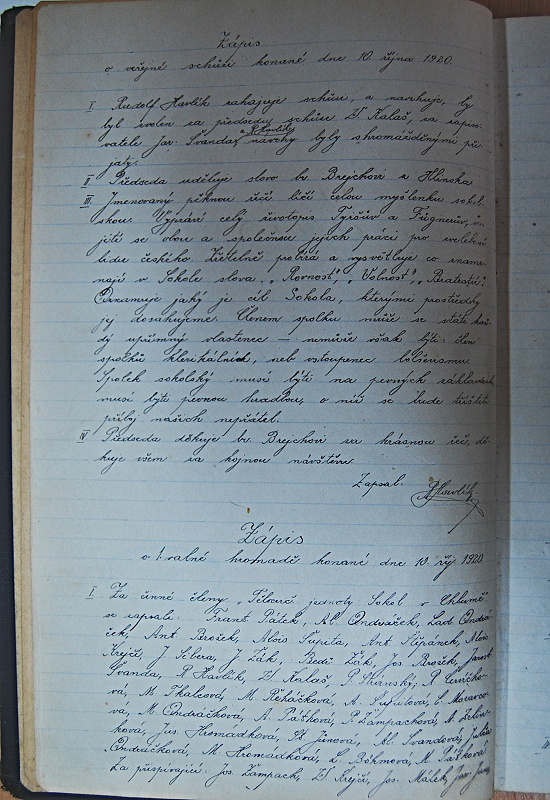 Zápis
o veřejné schůzi konané dne 10. října 1920.
I Rudolf Havlík zahajuje schůzi, a navrhuje, by
byl zvolen za předsedu schůze Zd. Kalaš, za zapiso-
vatele Jar. Švanda. R. Havlíka návrhy byly shromážděnými při-
jaty.
II. Předseda uděluje slovo br. Brejchovi z Hlinska
III. Jmenovaný pěknou řečí líčí celou myšlenku sokol-
skou. Vypráví celý životopis Tyršův a Fügnerův,
jejich práci pro
lidu českého. Zřetelně probírá a vysvětluje co zname-
nají v Sokole slova „Rovnost", „Volnost", „Bratrství".
Oznamuje jaký je cíl Sokola, kterými prostředky
jej dosahujeme. Členem spolku může se státi kaž-
dý upřímný vlastenec — nemůže však býti: člen
spolků klerikálních, neb vstoupenec bolševismu.
Spolek sokolský musí býti na pevných základech
musí býti pevnou hradbou, o niž se bude tříštiti
příboj našich nepřátel.
IV Předseda děkuje br. Brejchovi za krásnou řeč, dě-
kuje všem za hojnou návštěvu.
Zapsal: R Havlík
Zápis
o I. valné hromadě konané dne 10. říj. 1920.
I. Za činné členy „Tělocvič. jednoty Sokol v Chlumě"
se zapsali: Frant Pátek, Al. Ondráček, Lad Ondrá-
ček, Ant Brožek, Alois Supita, Ant. Štěpánek, Alois
Krejčí, J. Sebera, J. Žák, Bedř Žák, Jos Brožek, Jarosl
Švanda, R Havlík, Zd Kalaš, R. Slánský, R
vá, M. Tkalcová, M. Řeháčková, A. Supitová,
vá, M Ondráčková, A. Pátková, R Zámpachová, A
ková, Jus. Hromádková, Al. Švandová, Julie
Ondráčková, M. Hromádková, L. Böhmová, M. Pátková
Za přispívající: Jos. Zámpach, Zd Krejčí, Jos. Málek,